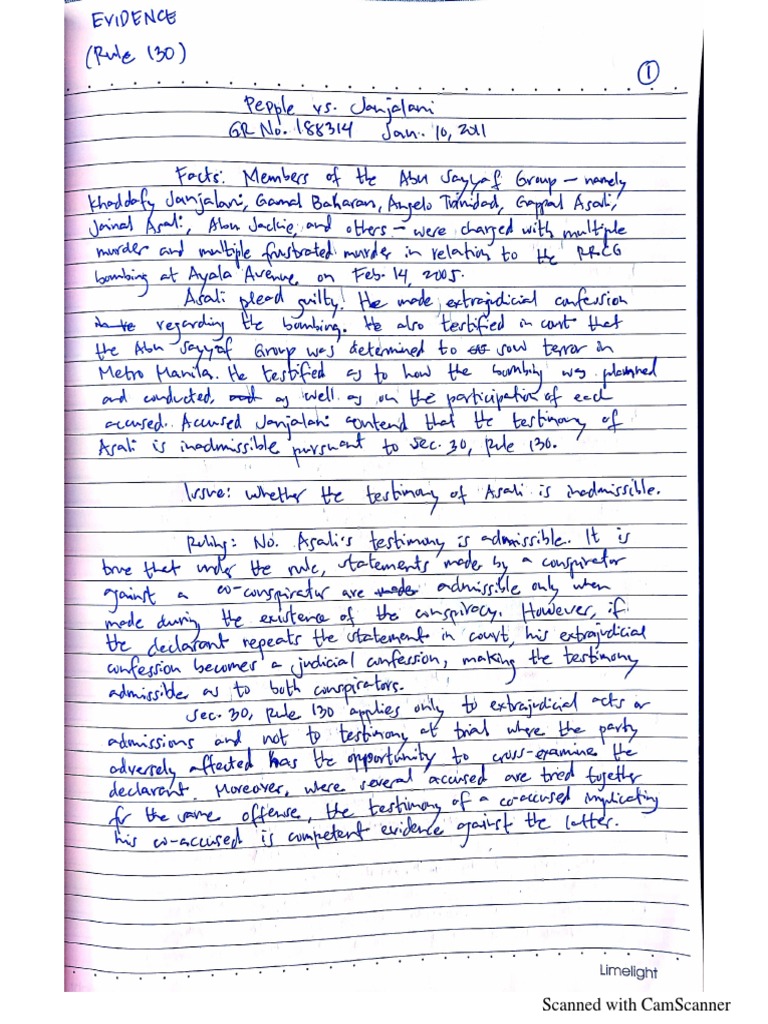 EVIDENCE
(Rule 130)
1
Pepple vs. Janjalani
GR No. 188314 Jan. 10, 2011
Facts: Members of the Abu Sayyaf Group – namely
Khaddafy Janjalani, Gamal Baharan, Angelo Trinidad, Gappal Asali,
Jainal Asali, Abu Jackie, and others – were charged with multiple
murder and multiple frustrated murder in relation to the RRCG
bombing at Ayala Avenue, on Feb. 14, 2005.
Asali plead guilty. He made extrajudicial confession
regarding the bombing. He also testified in court that
the Abu Sayyaf Group was determined to sow terror in
Metro Manila. He testified as to how the bombing was planned
and conducted, as well as on the participation of each
accused. Accused Janjalani contend that the testimony of
Asali is inadmissible pursuant to sec. 30, Rule 130.
Issue: Whether the testimony of Asali is inadmissible.
Ruling: No. Asali's testimony is admissible. It is
true that under the rule, statements made by a conspirator
against a co-conspirator are admissible only when
made during the existence of the conspiracy. However, if
the declarant repeats the statement in court, his extrajudicial
confession becomes a judicial confession, making the testimony
admissible as to both conspirators.
Sec. 30, Rule 130 applies only to extrajudicial acts or
admissions and not to testimony at trial where the party
adversely affected has the opportunity to cross-examine the
declarant. Moreover, were several accused are tried together
for the same offense, the testimony of a co-accused implicating
his co-accused is competent evidence against the latter.
Limelight
Scanned with CamScanner